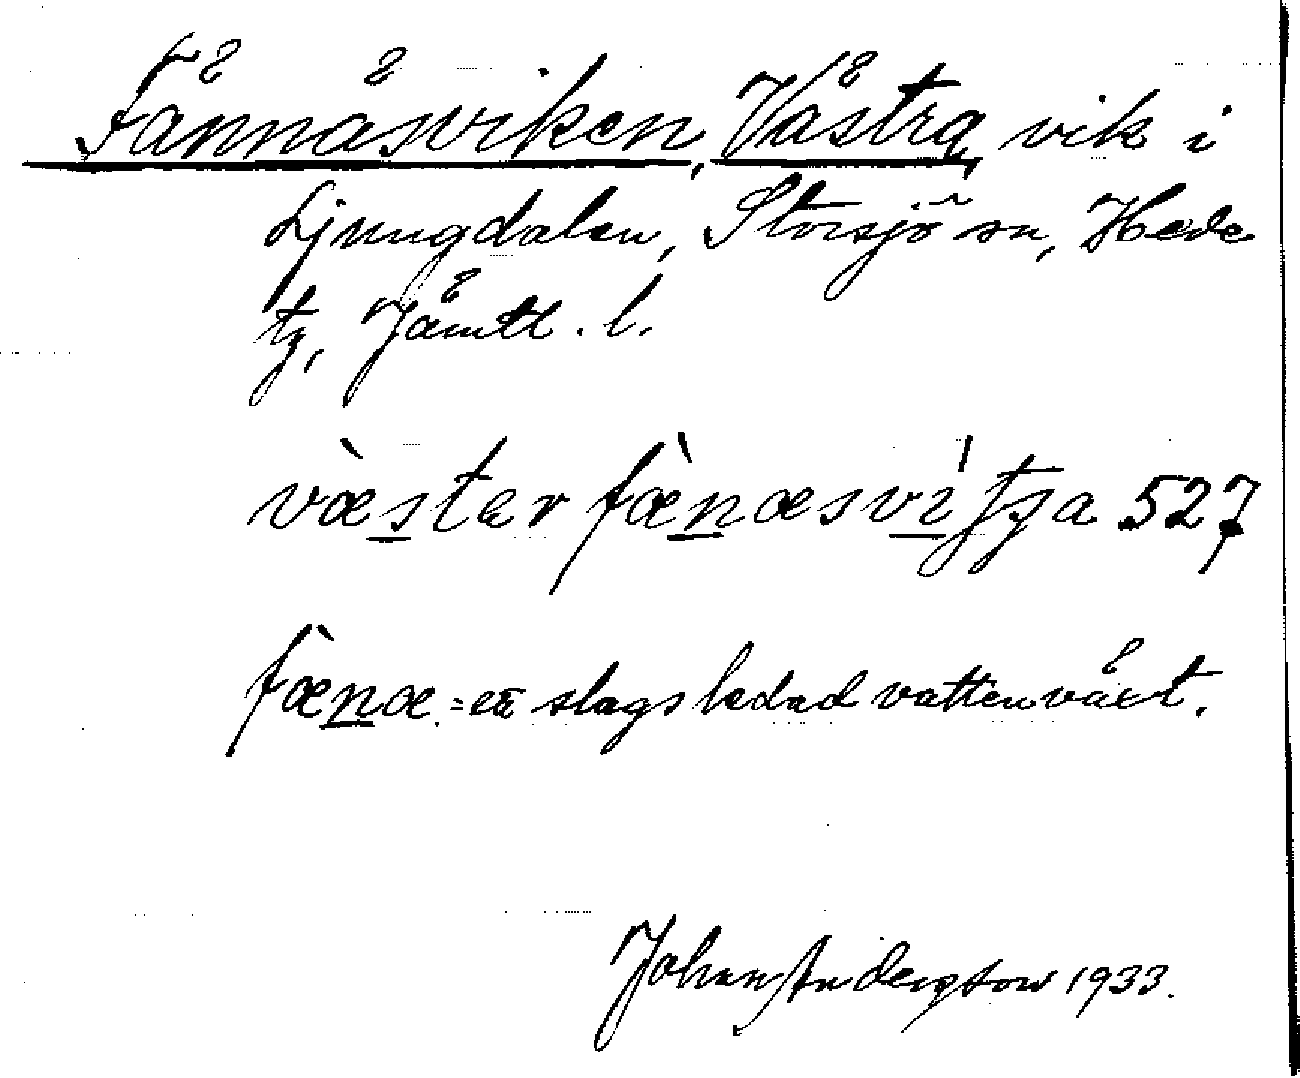 Fännäsviken, Västra, vik i
Ljungdalen, Storsjö sn, Hede
tg, Jämtl. l.
væ̀ster fæ̀næsvi̍tʃa 527
fæ̀næ = ett slags ledad vattenväxt.
Johan Andersson 1933.